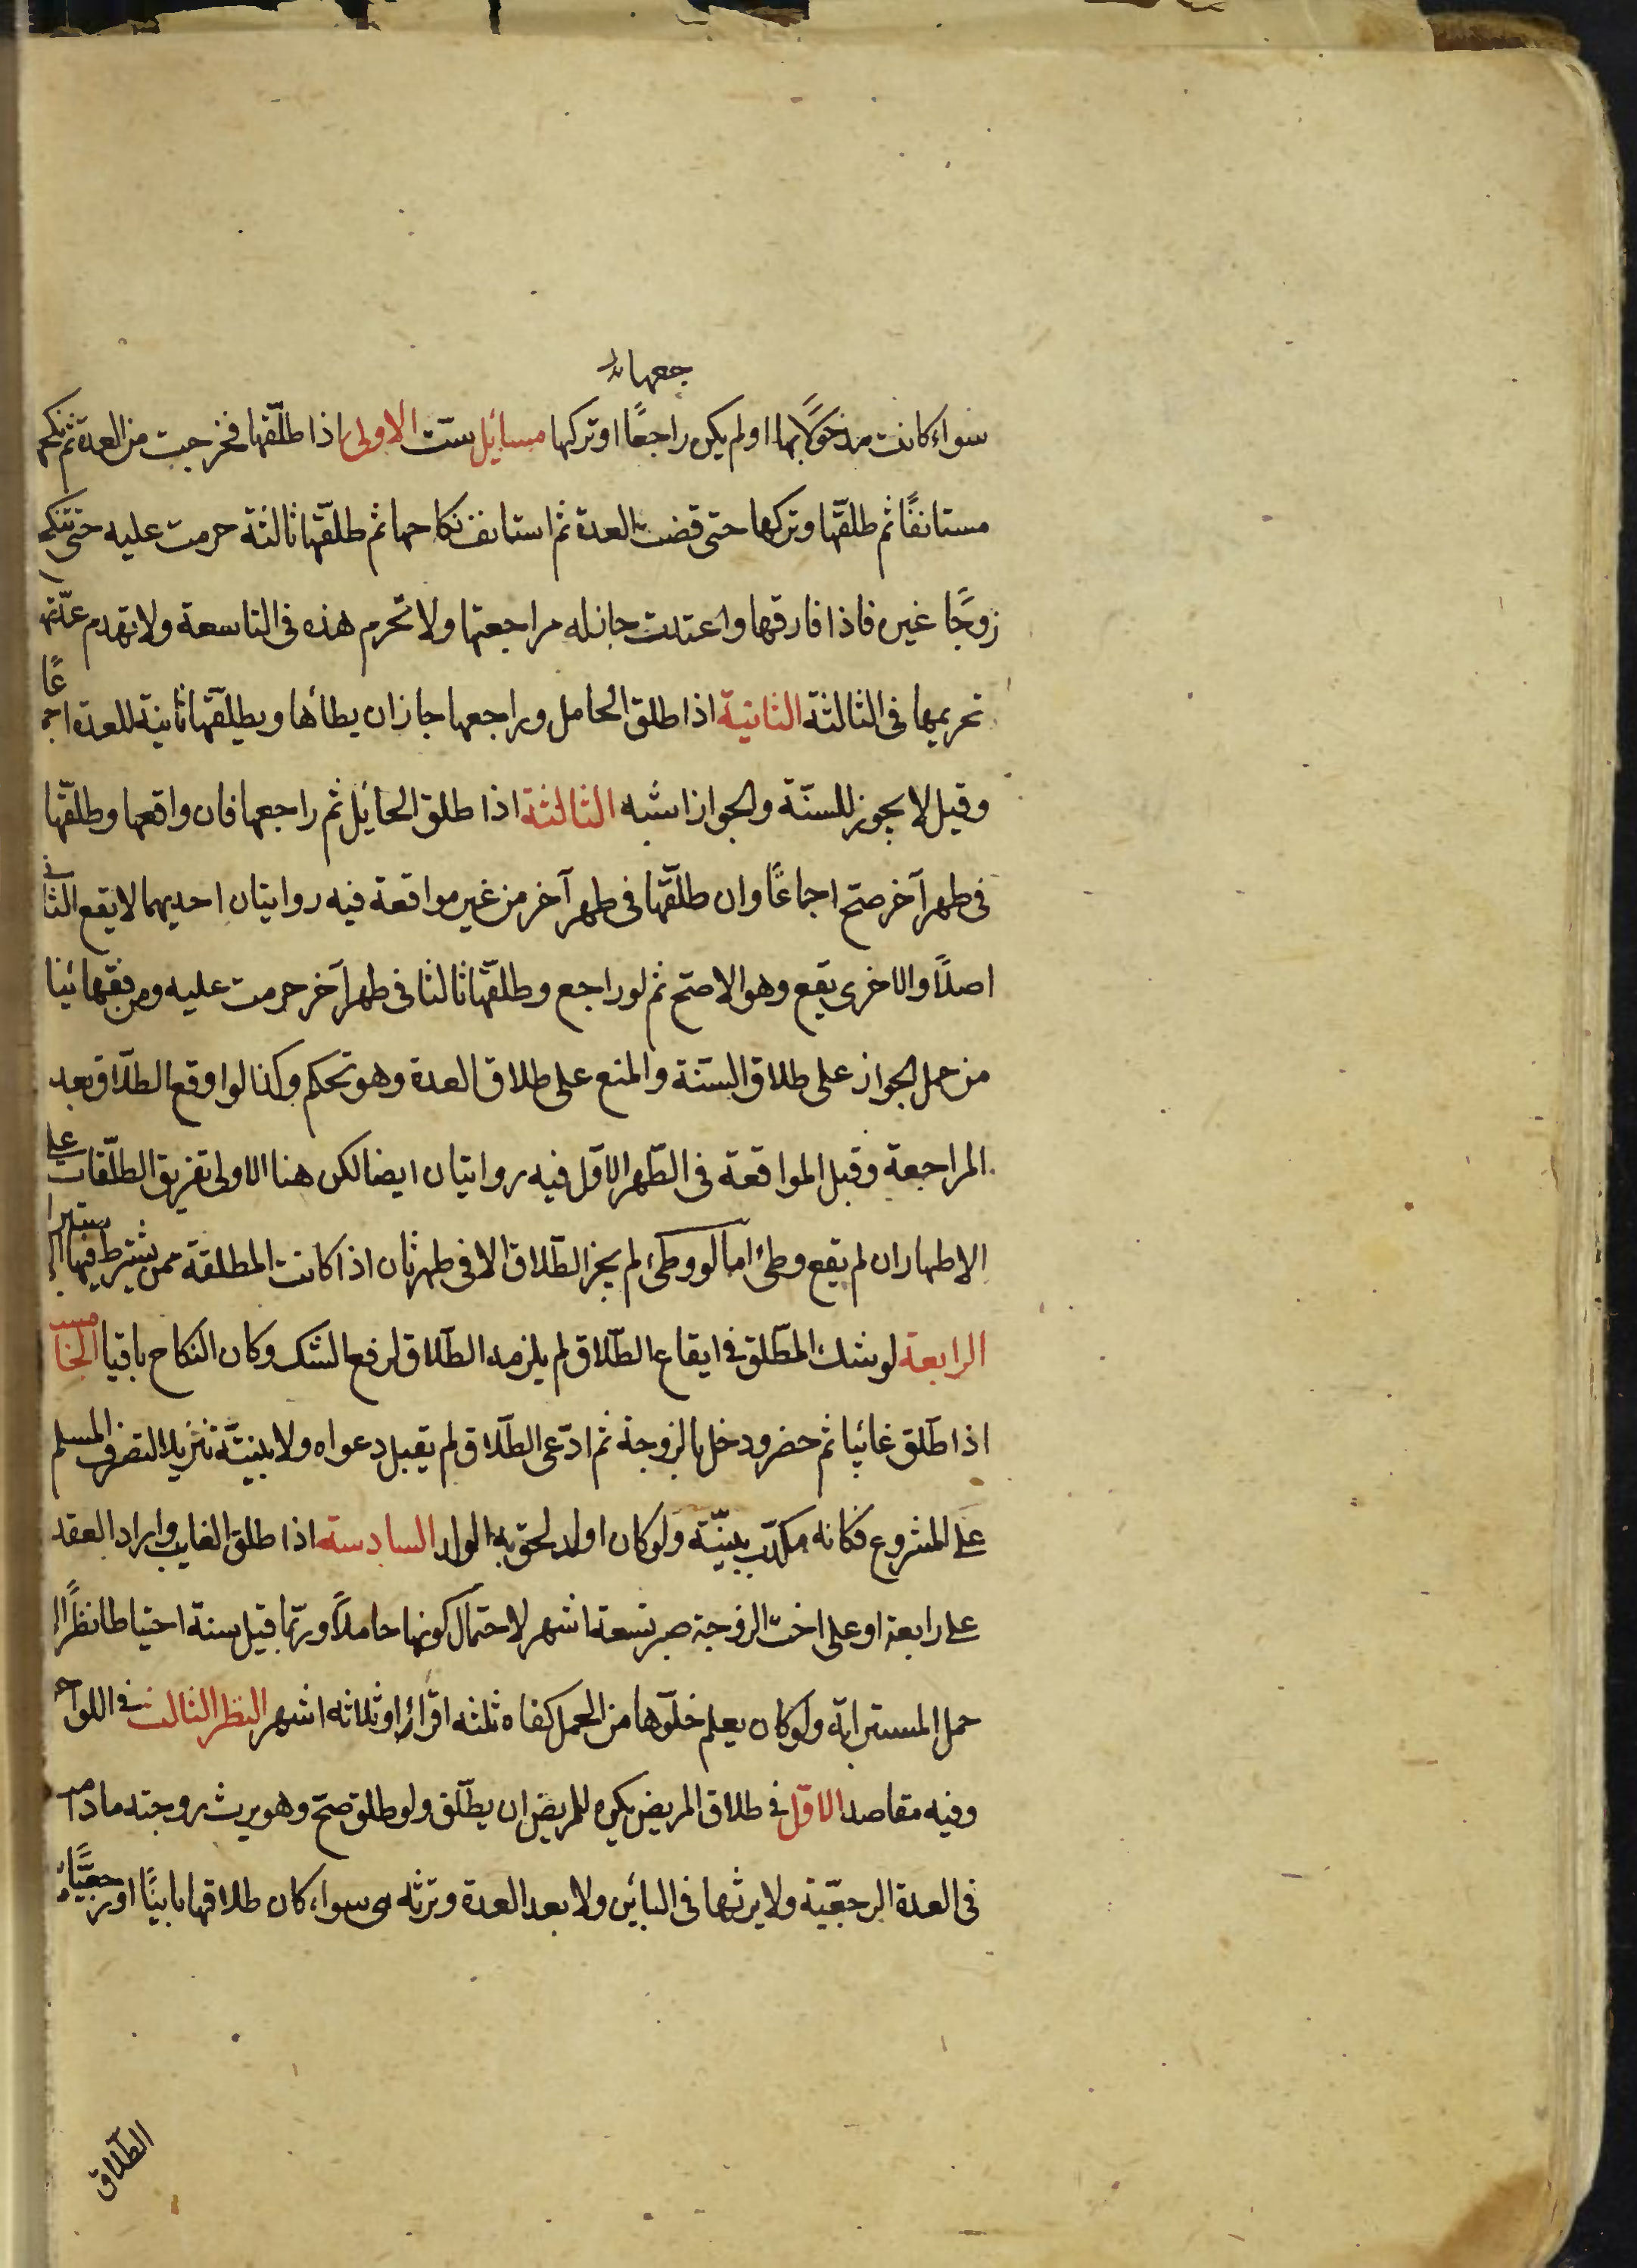 جعها
سواء كانت مدخولًا بها او لم يكن راجعًا او تركها مسائل ستّ الاولى اذا طلّقها فخرجت من العدة ثم نكحها
مستانفًا ثم طلقّها وتركها حتى قضت العدة ثم استانف نكاحها ثم طلقّها ثالثة حرمت عليه حتى تنكح
زوجًا غيره فاذا فارقها واعتدت جاز له مراجعتها ولا تحرم هذه فى التاسعة ولا يهدم عدّتها
تحريمها فى الثالثة الثانية اذا طلق الحامل وراجعها جاز ان يطأها ويطلّقها ثانية للعدة اجماعًا
وقيل لا يجوز للسنّة والجواز اشبه الثالثة اذا طلق الحائل ثم راجعها فان واقعها وطلّقها
فى طهر آخر صحّ اجماعًا وان طلّقها فى طهر آخر من غير مواقعة فيه روايتان احديهما لا يقع الثانى
اصلًا والاخرى يقع وهو الاصحّ ثم لو راجع وطلّقها ثالثا فى طهر آخر حرمت عليه ومن فقهائنا
من حمل الجواز على طلاق السّنة والمنع على طلاق العدة وهو تحكم وكذا لو اوقع الطلّاق بعد
المراجعة وقبل المواقعة فى الطّهر الاوّل فيه روايتان ايضا لكن هنا الاولى تفريق الطلّقات على
الاطهار ان لم يقع وطئ اما لو وطئ لم يجز الطّلاق الا فى طهر ثان اذا كانت المطلقة ممن يشترط فيها الاستبرا
الرابعة لو شك المطّلق فى ايقاع الطّلاق لم يلزمه الطّلاق لرفع الشك وكان النكاح باقيا الخامسة
اذا طّلق غائبا ثم حضر ودخل بالزوجة ثم ادّعى الطّلاق لم يقبل دعواه ولا بينتّه تنزيلا لتصرف المسلم
على المشروع فكانه مكذّب بينّته ولو كان اولد لحق به الولد السادسة اذا طلق الغايب واراد العقد
على رابعة او على اخت الزوجة صبر تسعة اشهر لاحتمال كونها حاملًا وربّما قيل سنة احتياطا نظرًا الى
حمل المسترابة ولو كان يعلم خلّوها من الحمل كفاه ثلثه اقرٓاء او ثلاثه اشهر النظر الثالث فى اللواحق
وفيه مقاصد الاوّل فى طلاق المريض يكره للمريض ان يطّلق ولو طلق صحّ وهو يرث زوجته مادامت
فى العدة الرجعّية ولا يرثها فى البائن ولا بعد العدة وترثه هى سواء كان طلاقها باينًا او رجعيًّا
الطّلاق